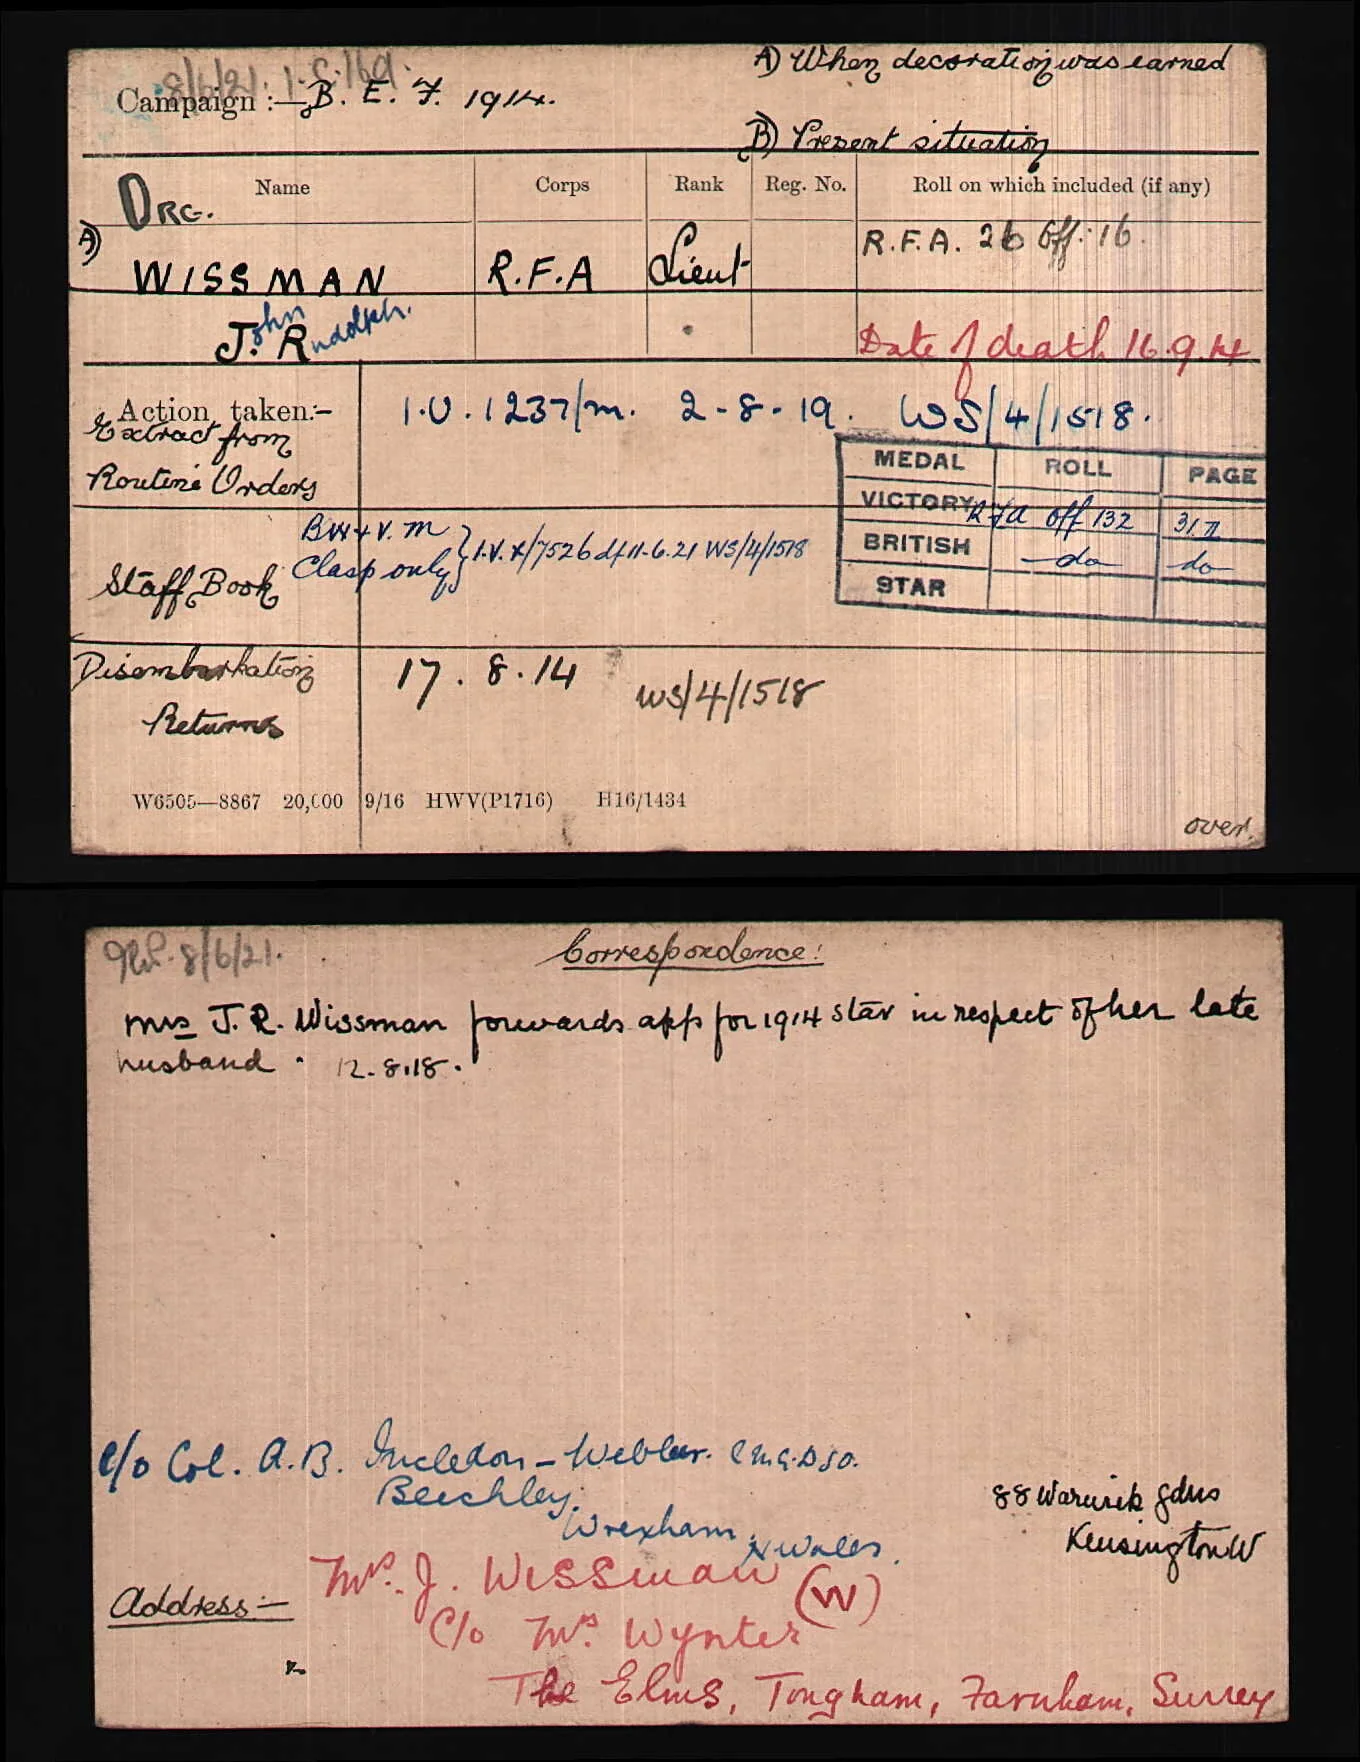 8/6/21.
Campaign :— B. E. F. 1914.
A) When decoration was earned
B) Present situation
Name Corps Rank Reg. No. Roll on which included (if any)
DRG.
A) WISSMAN R.F.A Lieut R.F.A. 2b Off: 16.
John Rudolph. Date of death 16.9.14
Action taken:- 1.V.1237/M. 2-8-19. WS/4/1518.
Extract from
Routine Orders
MEDAL ROLL PAGE
VICTORY RFA Off 132 31.
BRITISH —do— do—
STAR
BW & V. M
Clasp only } I.V.X/7526 d/11-6.21 WS/4/1518
Staff Book
Disembarkation
Returns
17. 8. 14 WS/4/1518
W6505—8867 20,000 9/16 HWV(P1716) H16/1434
over.
8/6/21.
Correspondence:
Mrs J. R. Wissman forwards app for 1914 Star in respect of her late
husband. 12.8.18.
C/o Col. A. B. Incledon-Webber. C.M.G. D.S.O.
Beechley,
Wrexham,
N Wales.
88 Warwick Gdns
Kensington W
Address:—
Mrs. J. Wissman (W)
C/o Mrs. Wynter
The Elms, Tongham, Farnham, Surrey